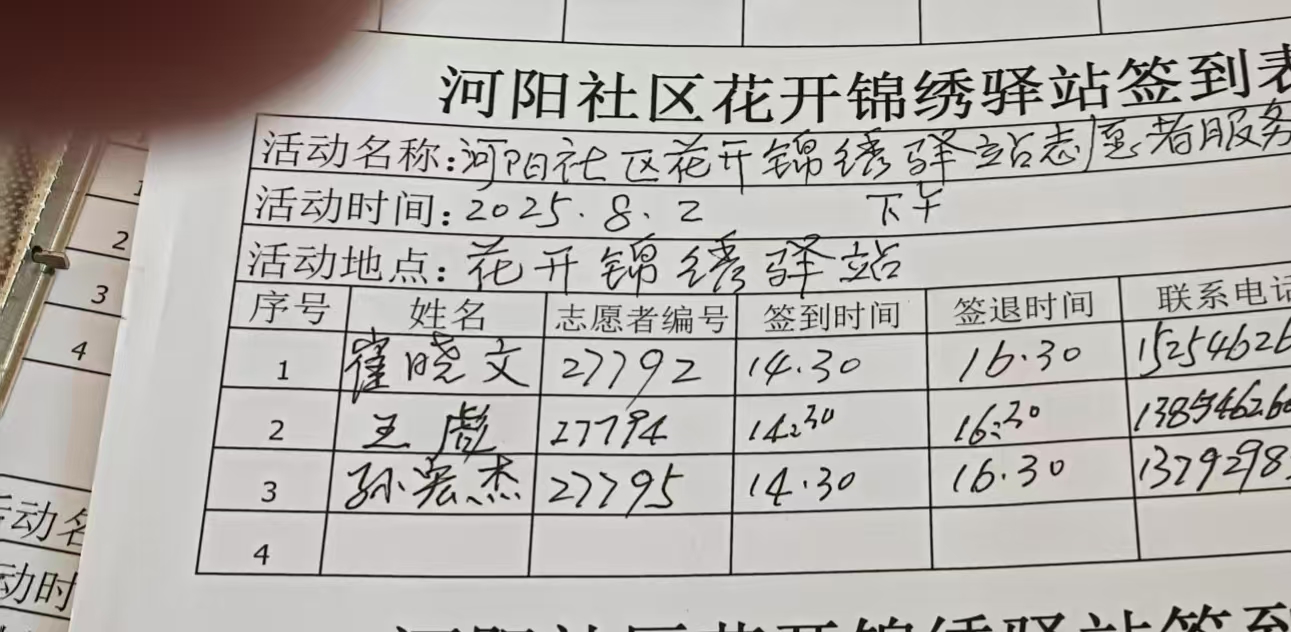 河阳社区花开锦绣驿站签到表
活动名称:河阳社区花开锦绣驿站志愿者服务
活动时间:2025.8.2 下午
活动地点:花开锦绣驿站
序号 姓名 志愿者编号 签到时间 签退时间 联系电话
1 崔晓文 27792 14.30 16.30 15254626
2 王彪 27794 14:30 16:30 13854626
3 孙宏杰 27795 14.30 16.30 1379298
4
2
3
4
活动名
动时
河阳社区花开锦绣驿站签到